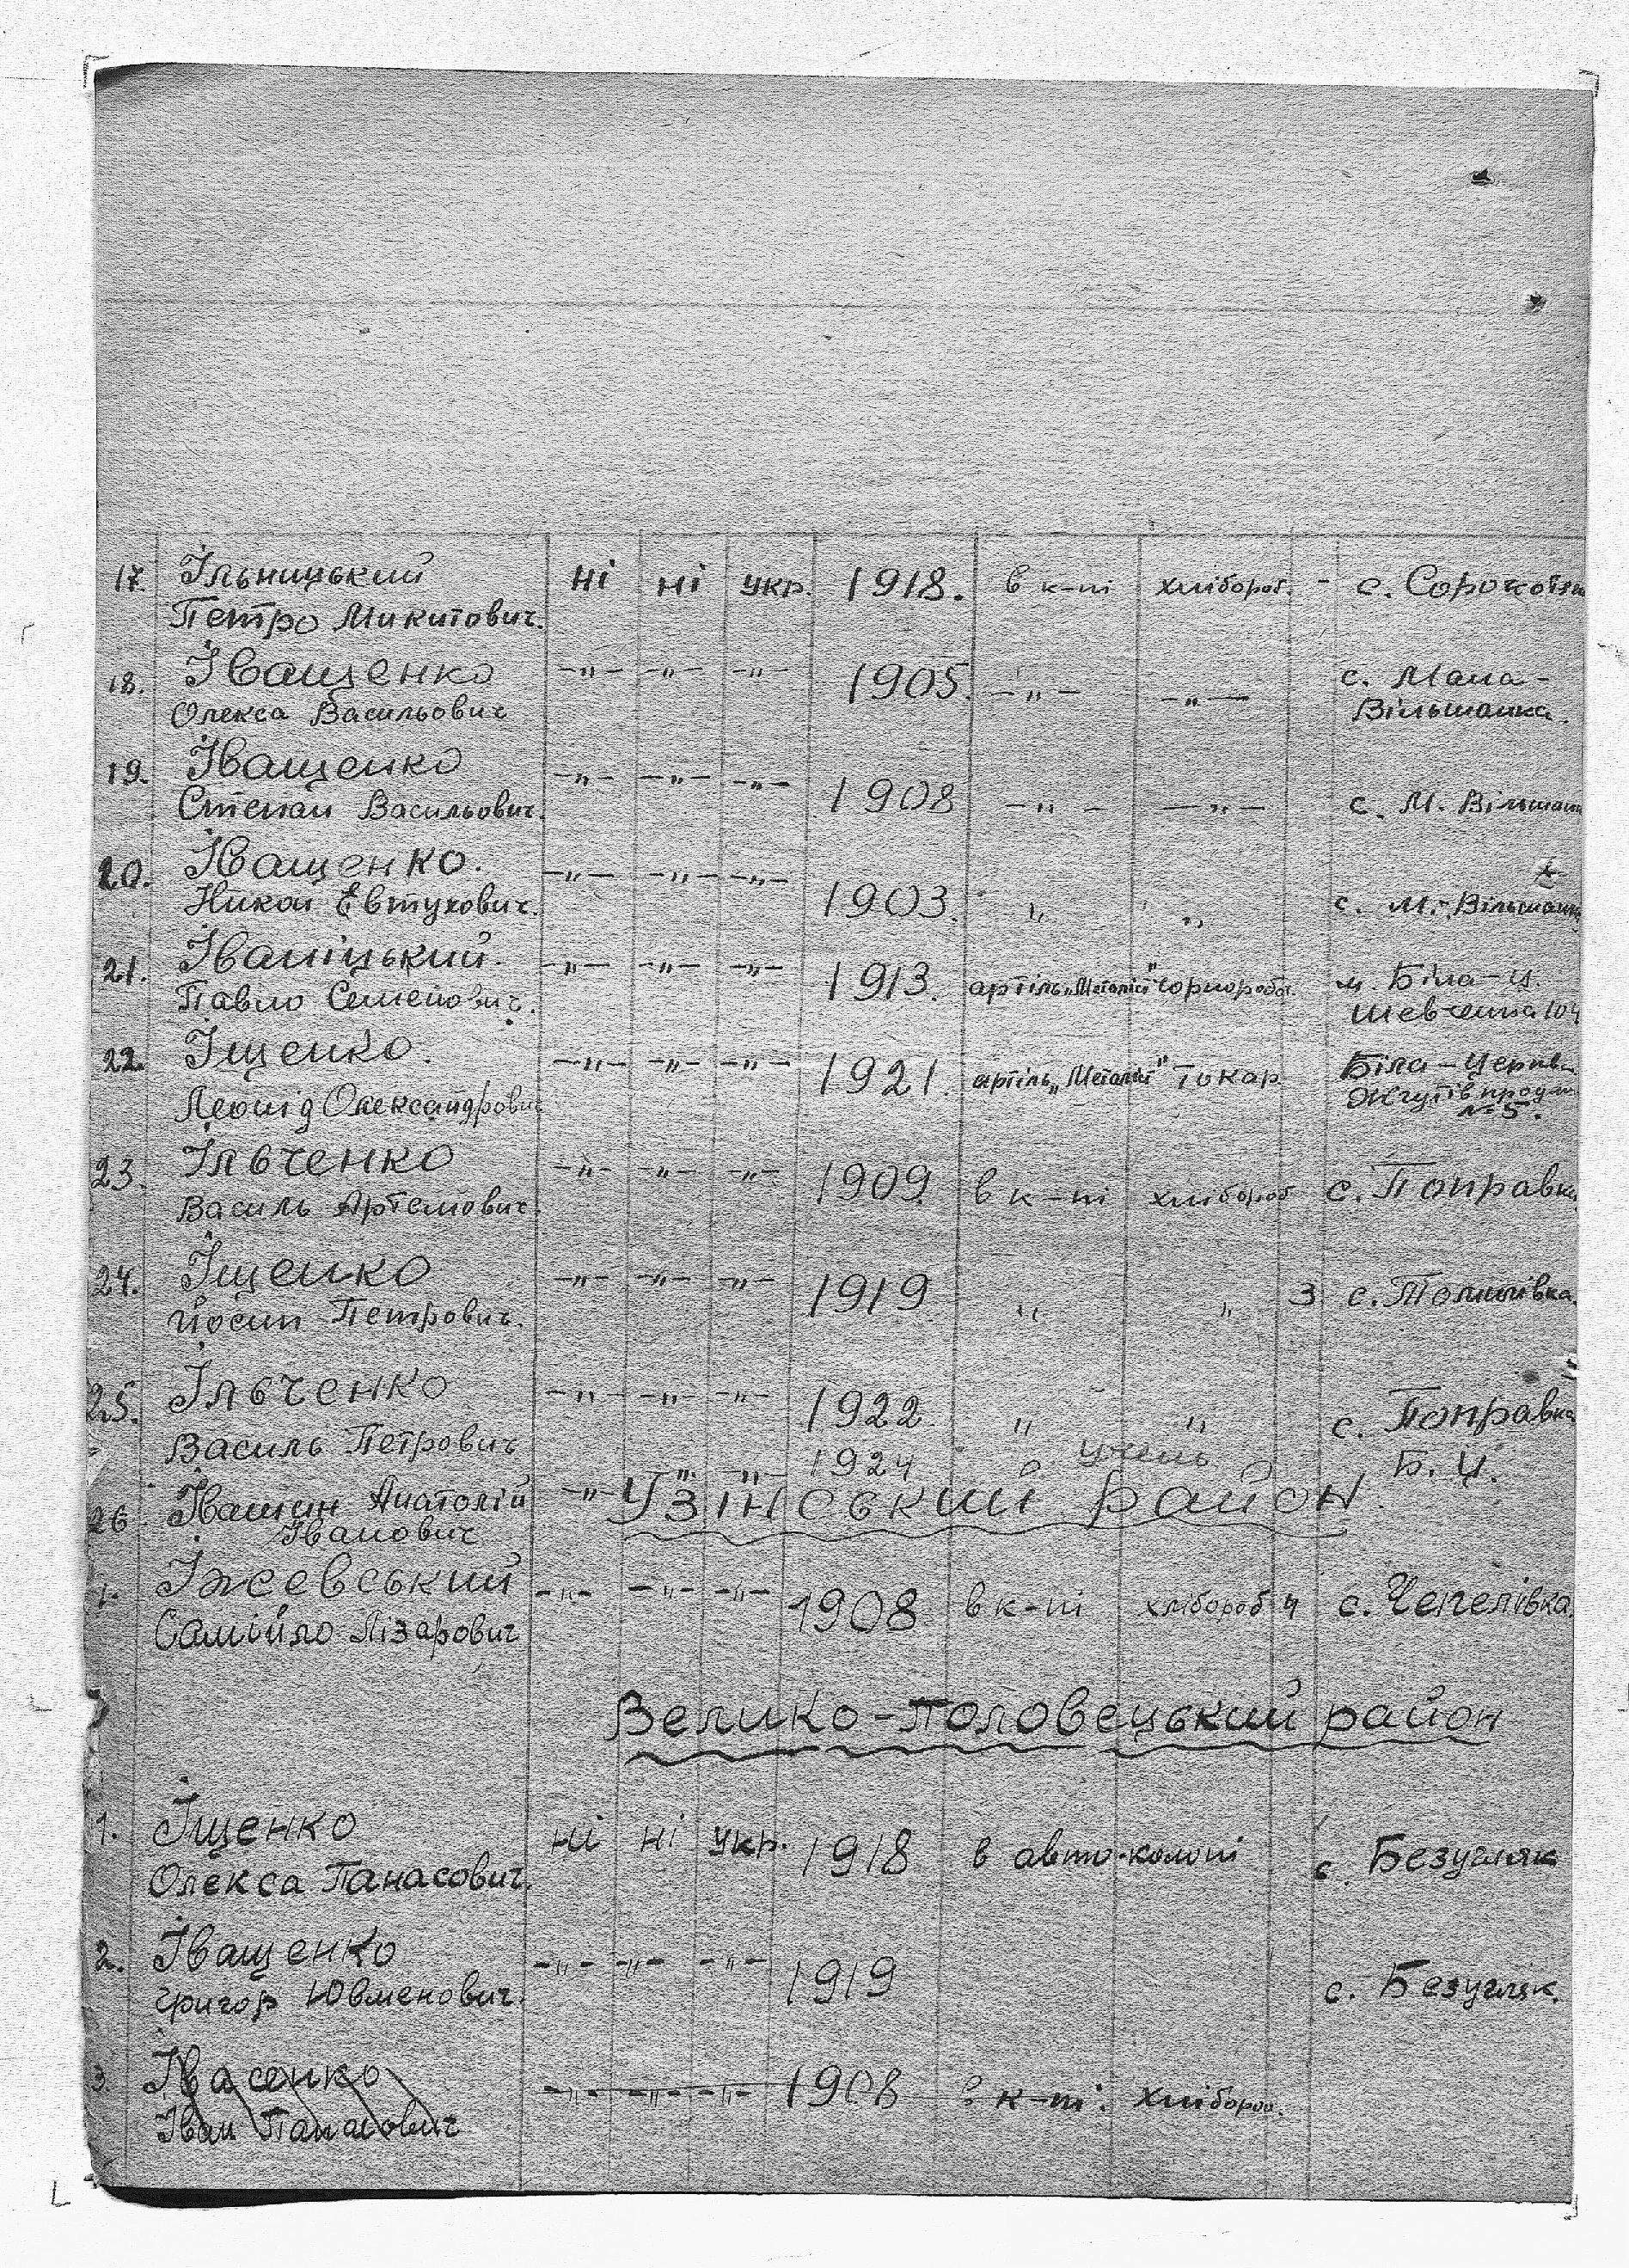 17. Ільницький ні ні укр. 1918. в к-пі хлібороб. - с. Сорокотяги
Петро Микитович.
18. Іващенко -"- -"- -"- 1905. -"- -"- с. Мала-
Олекса Васильович Вільшанка.
19. Іващенко -"- -"- -"- 1908 -"- -"- с. М. Вільшанк
Степан Васильович.
20. Іващенко. -"- -"- -"- 1903. " " с. М.-Вільшанка
Никон Евтухович.
21. Іваніцький. -"- -"- -"- 1913. артіль „Металіст" чорнороб. м. Біла-Ц.
Павло Семенович. Шевченка 104
22. Іщенко. -"- -"- -"- 1921. артіль „Металіст" Токар Біла-Церква
Леонід Олександрович №5.
23. Ільченко -"- -"- -"- 1909 в к-пі хлібороб с. Поправка
Василь Артемович.
24. Іщенко -"- -"- -"- 1919 " " 3 с. Томилівка.
Йосип Петрович.
25. Ільченко -"- -"- -"- 1922 " " с. Поправка
Василь Петрович
26 Івашин Анатолій -"- " " 1924 учень Б. Ц.
Іванович
Узінський район.
1. Іжевський -"- -"- -"- 1908 в к-пі хлібороб 4 с. Чепелівка.
Самійло Лізарович
Велико-Половецький район
1. Іщенко ні ні укр. 1918 в авто-колоні с. Безугляк
Олекса Панасович.
2. Іващенко -"- -"- -"- 1919 с. Безугляк.
Григор Ювменович.
3. Івасенко -"- -"- -"- 1908 в к-пі. хлібороб.
Іван Панасович